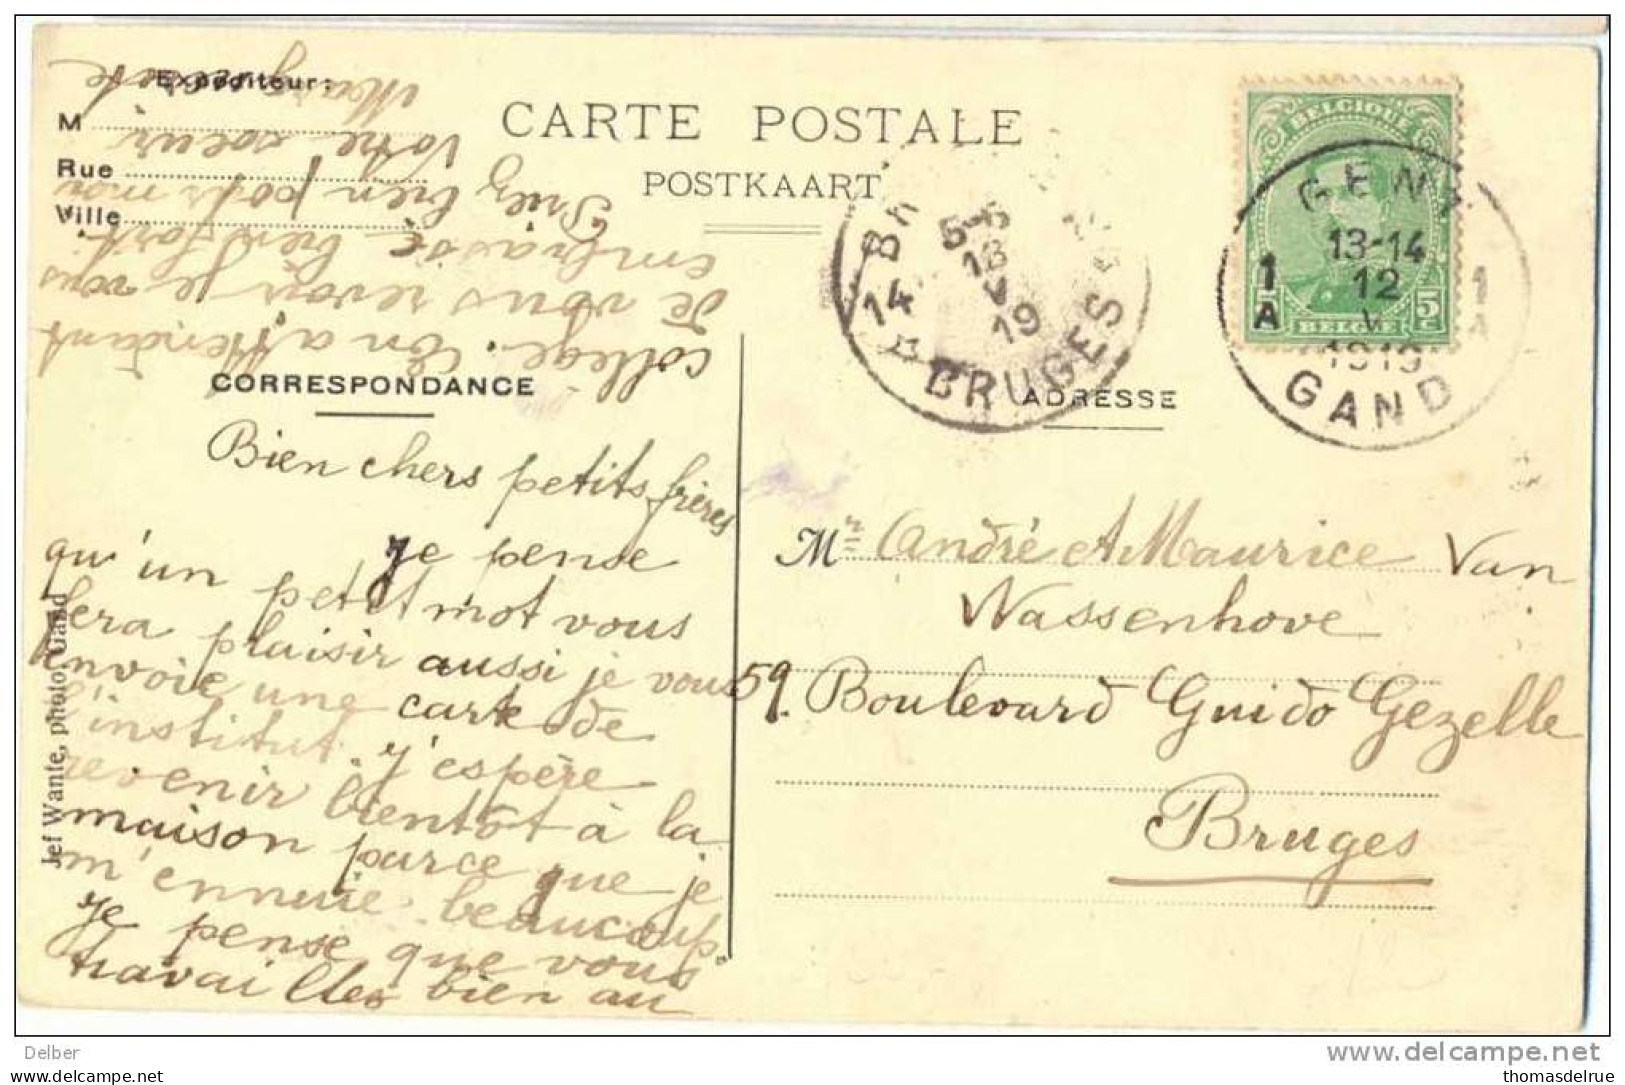 CARTE POSTALE
POSTKAART
Expéditeur:
M
Rue
Ville
CORRESPONDANCE
Bien chers petits frères
Je pense
qu'un petit mot vous
fera plaisir aussi je vous
envoie une carte de
l'institut. J'espère
revenir bientôt à la
maison parce que je
m'ennuie beaucoup
Je pense que vous
travaillez bien au
collège. En attendant
de vous revoir je vous
embrasse bien fort
Priez bien pour moi
Votre soeur
Jef Wante, photo, Gand
BELGIQUE
5c
BELGIE
5c
GENT
13-14
12
V
1919
GAND
1
A
1
A
5-6
13
V
19
14
BRUGES
ADRESSE
Mr André et Maurice Van
Wassenhove
59. Boulevard Guido Gezelle
Bruges
Delber
www.delcampe.net
thomasdelrue